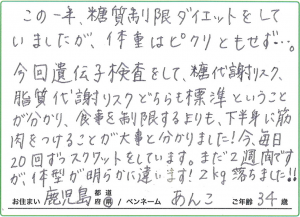 この一年、糖質制限ダイエットをして
いましたが、体重はピクリともせず…。
今回遺伝子検査をして、糖代謝リスク、
脂質代謝リスクどちらも標準ということ
が分かり、食事を制限するよりも、下半身に筋
肉をつけることが大事と分かりました!今、毎日
20回ずつスクワットをしています。まだ2週間です
が、体型が明らかに違います!2kg落ちました!!
お住まい 鹿児島 都道府県 / ペンネーム あんこ ご年齢 34歳